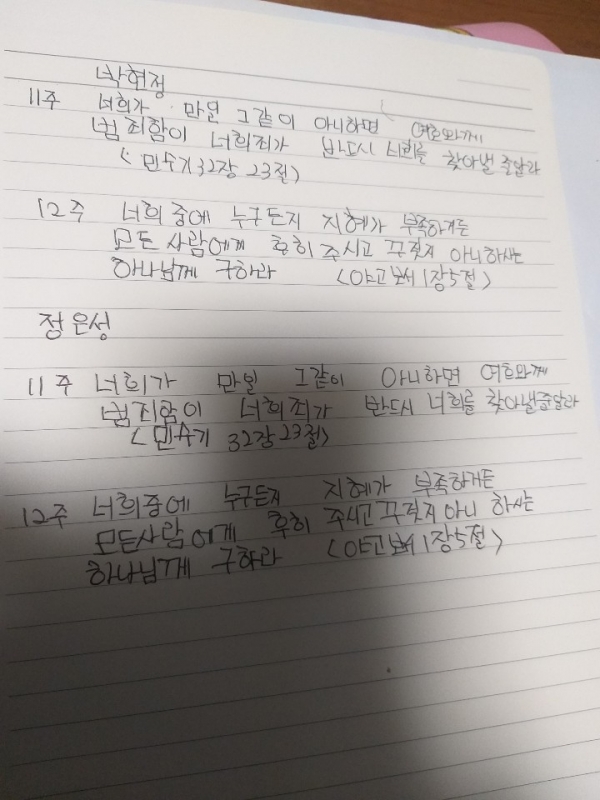 박현정
11주 너희가 만일 그같이 아니하면 여호와께
범죄함이 너희죄가 반드시 너희를 찾아낼 줄 알라
<민수기 32장 23절>
12주 너희 중에 누구든지 지혜가 부족하거든
모든 사람에게 후히 주시고 꾸짖지 아니하시는
하나님께 구하라 <야고보서 1장 5절>
정은성
11주 너희가 만일 그같이 아니하면 여호와께
범죄함이 너희죄가 반드시 너희를 찾아낼줄알라
<민수기 32장 23절>
12주 너희중에 누구든지 지혜가 부족하거든
모든사람에게 후히 주시고 꾸짖지 아니 하시는
하나님께 구하라 <야고보서 1장 5절>